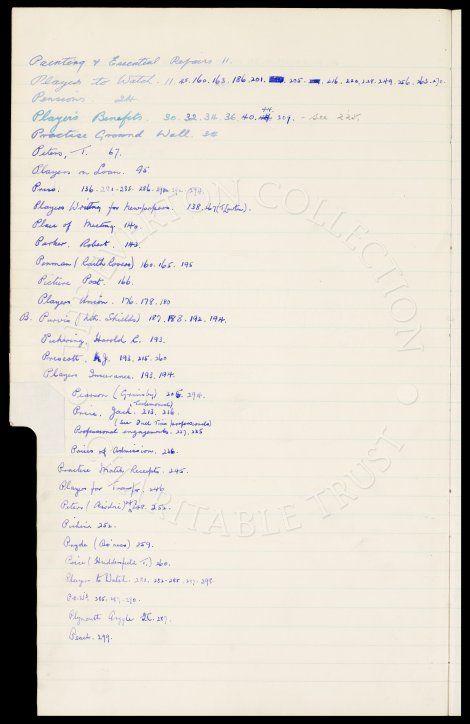 Painting & Essential Repairs 11.
Players to Watch. 11. 160. 163. 186. 201. 205. 216. 220. 249. 256. 263.
Pensions. 24
Player's Benefits. 30. 32. 34. 36. 40. 44. 209. - See 228.
Practise Ground Wall. 34
Peters, T. 67.
Players on Loan. 95
Press. 136.
Players Writing for Newspapers. 138.
Place of Meeting 140.
Parker, Robert. 143
Penman (Raith Rovers) 160. 165. 195
Picture Post. 166.
Players Union. 176. 178. 180
B. Purvis (Nth. Shields) 187. 188. 192. 194.
Pickering, Harold C. 193.
Prescott, J. 193. 215. 260
Players Insurance. 193. 194.
Pearson (Grimsby) 206. 294.
Price, Jack. (Testimonial) 213. 216.
(See Full Time professionals)
Professional engagements. 227. 228
Prices of Admission. 226.
Practice Match Receipts. 245.
Players for Transfer. 246
Peters 248. 252.
252.
Pryde 259.
Price (Huddersfield T.) 260.
Players to Watch. 282. 285. 298.
285. 290.
Plymouth Argyle F.C. 287.
Peach. 299.
EVERTON COLLECTION
CHARITABLE TRUST